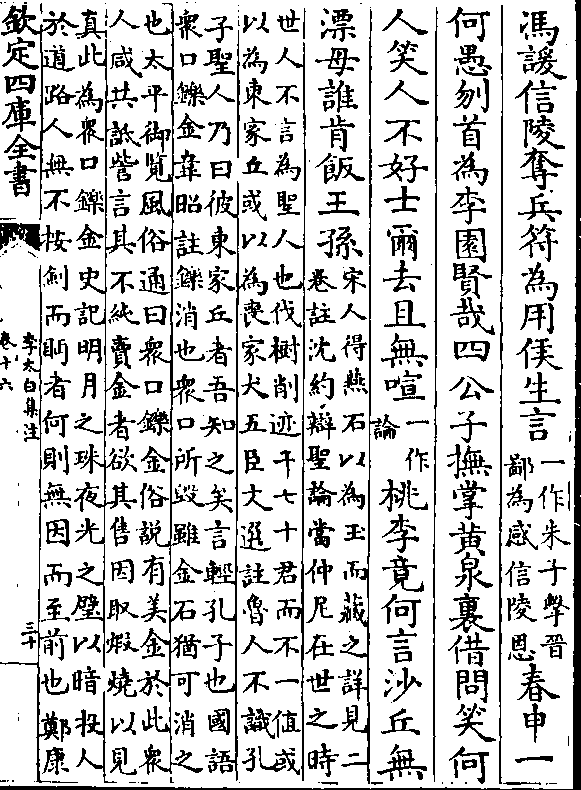 馮諼信陵奪兵符為用侯生言一作朱子擊晉
鄙為感信陵恩春申一
何愚刎首為李園賢哉四公子撫掌黃泉裏借問笑何
人笑人不好士爾去且無喧一作
論桃李竟何言沙丘無
漂母誰肯飯王孫宋人得燕石以為玉而藏之詳見二
卷註沈約辯聖論當仲尼在世之時
世人不言為聖人也伐樹削迹干七十君而不一值或
以為東家丘或以為喪家犬五臣文選註魯人不識孔
子聖人乃曰彼東家丘者吾知之矣言輕孔子也國語
衆口鑠金韋昭註鑠消也衆口所毀雖金石猶可消之
也太平御覽風俗通曰衆口鑠金俗説有美金於此衆
人咸共詆訾言其不純賣金者欲其售因取煅燒以見
真此為衆口鑠金史記明月之珠夜光之璧以暗投人
於道路人無不按劍而眄者何則無因而至前也鄭康
欽定四庫全書
李太白集注
卷十六
三十